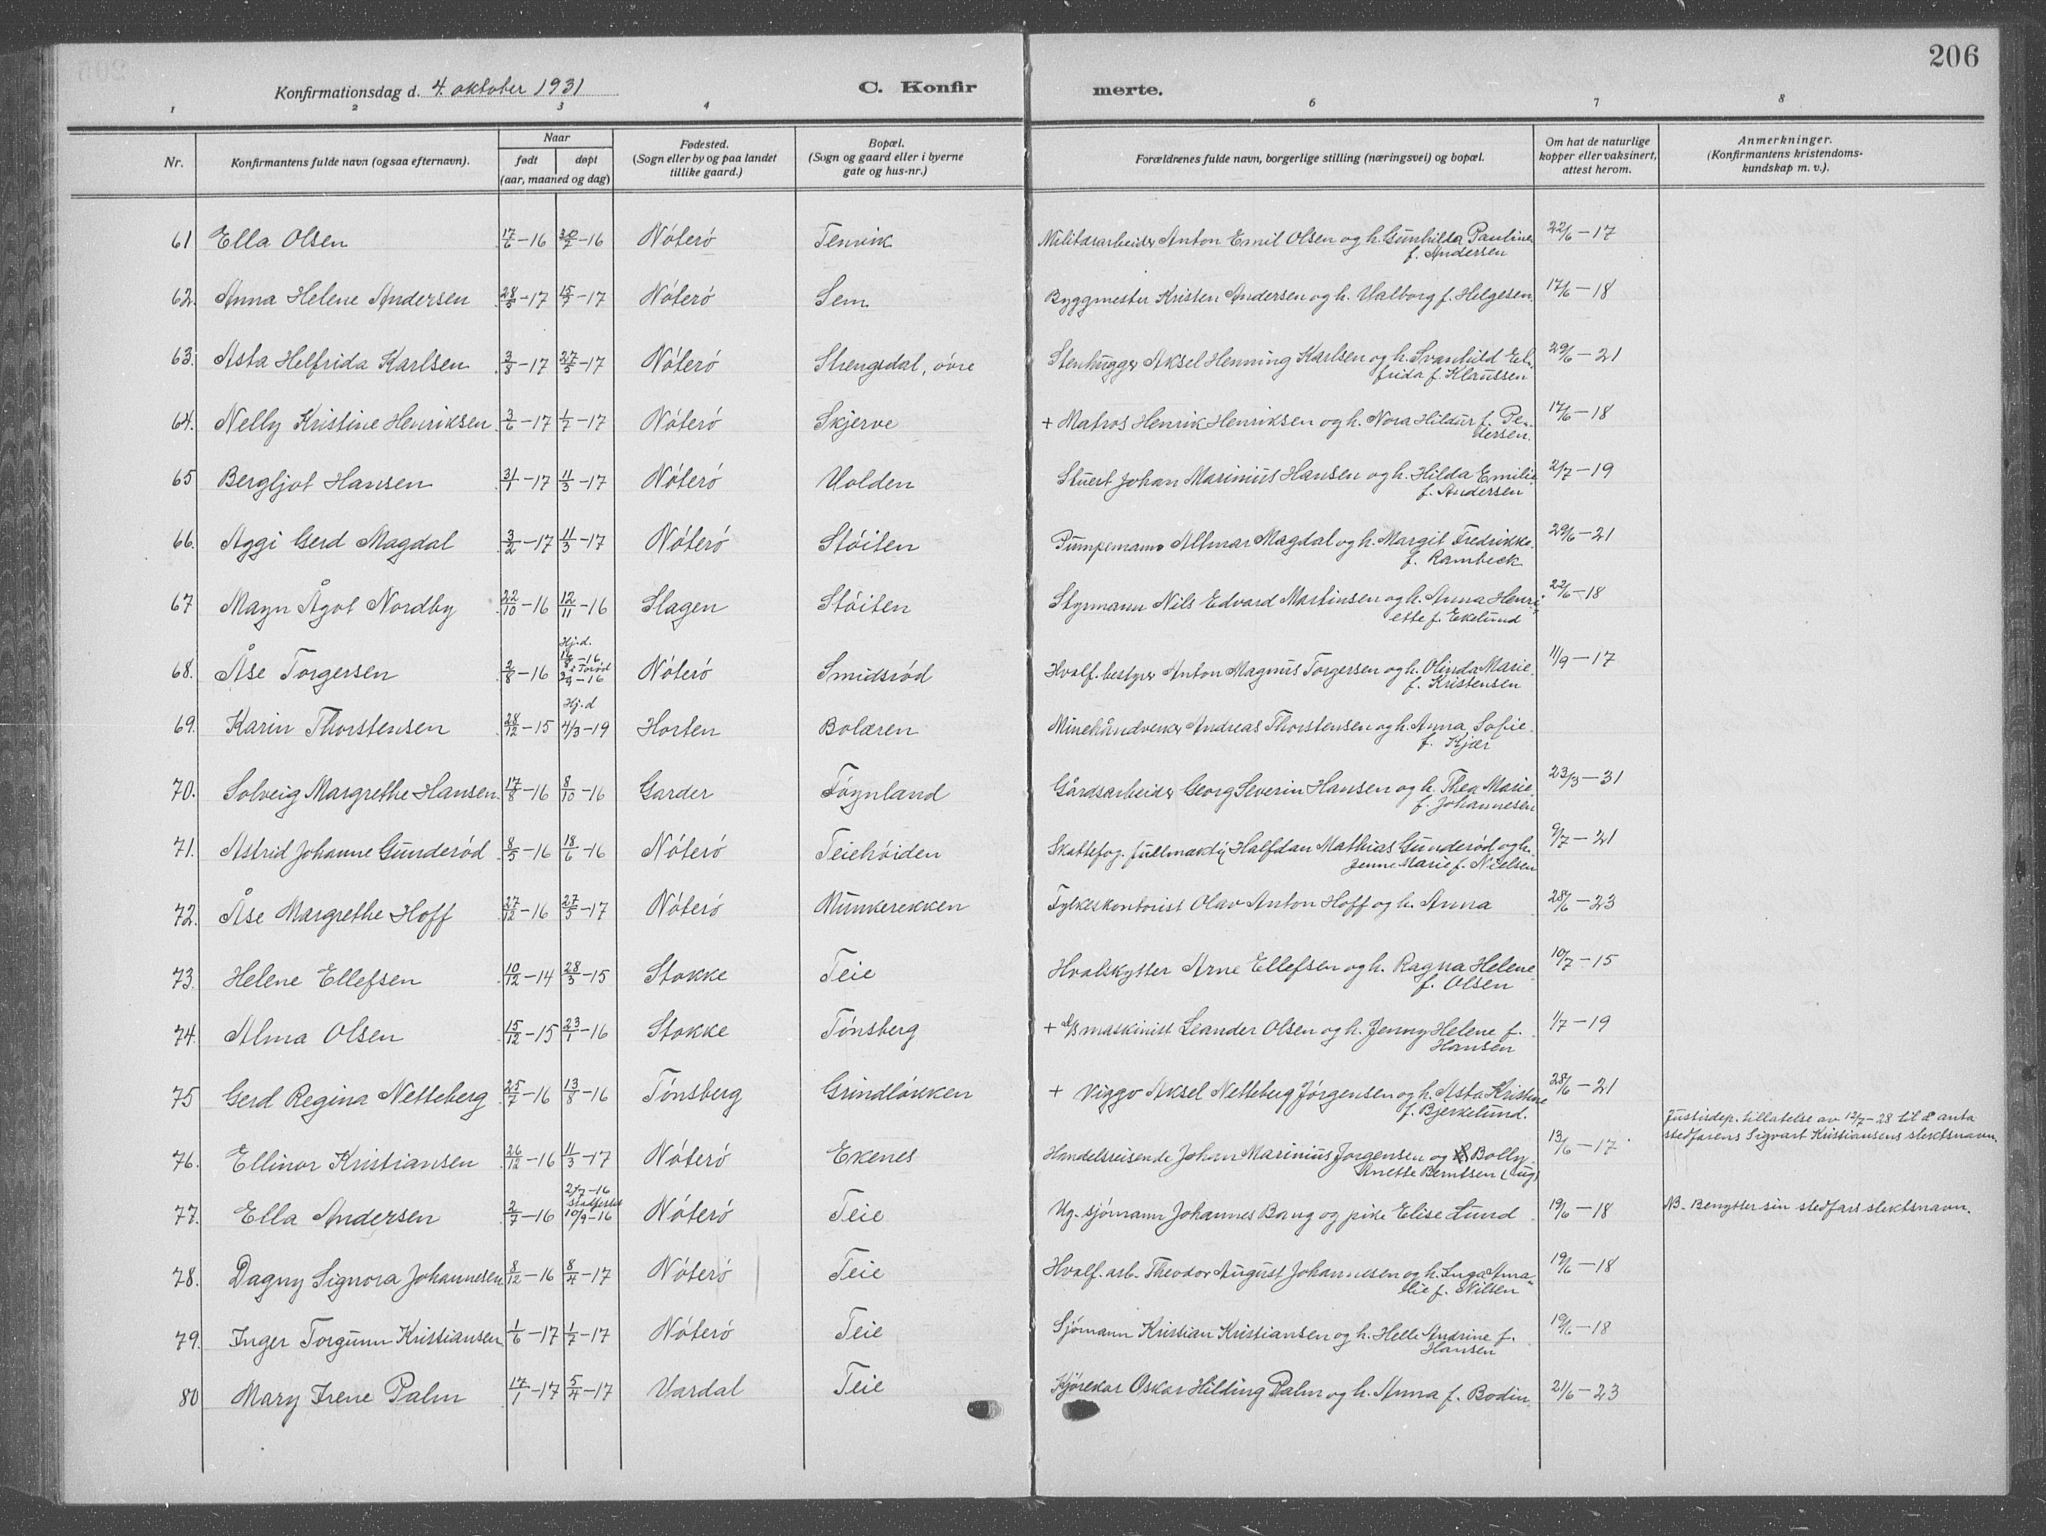 206
Konfirmationsdag d. 4. oktober 1931 C. Konfir merte.
1 2 3 4 6 7 8
Nr. Konfirmantens fulde navn (ogsaa efternavn). Naar født døpt (aar, maaned og dag) Fødested. (Sogn eller by og paa landet tillike gaard.) Bopæl. (Sogn og gaard eller i byerne gate og hus-nr.) Forældrenes fulde navn, borgerlige stilling (næringsvei) og bopæl. Om hat de naturlige kopper eller vaksinert, attest herom. Anmerkninger. (Konfirmantens kristendoms-kundskap m. v.).
61 Ella Olsen 17/6-16 30/7-16 Nøterø Tenvik Militærarbeider Anton Emil Olsen og h. Gunhilda Pauline 22/6-17
f. Andersen
62. Anna Helene Andersen 28/5-17 15/7-17 Nøterø Sem Byggmester Kristen Andersen og h. Valborg f. Helgesen 17/6-18
63. Asta Helfrida Karlsen 3/3-17 27/5-17 Nøterø Strengsdal, øvre Stenhugger Aksel Henning Karlsen og h. Svanhild El- 29/6-21
frida f. Klaussen
64. Nelly Kristine Henriksen 3/6-17 1/7-17 Nøterø Skjerve + Matros Henrik Henriksen og h. Nora Hildur f. Pe- 17/6-18
dersen.
65 Bergljot Hansen 31/1-17 11/3-17 Nøterø Volden Stuert Johan Marinius Hansen og h. Hilda Emilie 2/7-19
f. Andersen
66. Aggi Gerd Magdal 3/2-17 11/3-17 Nøterø Støiten Pumpemann Altmar Magdal og h. Margit Fredrikke 29/6-21
f. Rambeck
67 Mayn Ågot Nordby 22/10-16 12/11-16 Slagen Støiten Styrmann Nils Edvard Martinsen og h. Anna Henri- 22/6-18
ette f. Ekelund
Hj.d.
68. Åse Torgersen 2/8-16 16/8-16 i Torød 3/9-16 Nøterø Smidsrød Hvalf. bestyrer Anton Magnus Torgersen og h. Olinda Marie 11/9-17
f. Kristensen
Hj.d
69. Karin Thorstensen 28/12-15 4/3-19 Horten Bolæren Minehåndverker Andreas Thorstensen og h. Anna Sofie
f. Kjær
70. Solveig Margrethe Hansen 17/8-16 8/10-16 Garder Føynland Gårdsarbeider Georg Severin Hansen og h. Thea Marie 23/3-31
f. Johannesen
71. Astrid Johanne Gunderød 8/5-16 18/6-16 Nøterø Teiehøiden Skattefog. fullmektig Halfdan Mathias Gunderød og h. 9/7-21
Jenne Marie f. Nielsen
72. Åse Margrethe Hoff 27/12-16 27/5-17 Nøterø Munkerekken Fylkeskontorist Olav Anton Hoff og h. Anna 28/6-23
73. Helene Ellefsen 10/12-14 28/3-15 Stokke Teie Hvalskytter Arne Ellefsen og h. Ragna Helene 10/7-15
f. Olsen
74. Alma Olsen 15/12-15 23/1-16 Stokke Tønsberg + d/s maskinist Leander Olsen og h. Jenny Helene f. 1/7-19
Hansen
75 Gerd Regina Netteberg 25/7-16 13/8-16 Tønsberg Grindløkken + Viggo Aksel Netteberg Jørgensen og h. Asta Kristine 28/6-21
f. Bjerkelund.
Justisdep. tillatelse av 12/7-28 til å anta
stedfarens Sigvart Kristiansens slektsnavn.
76. Ellinor Kristiansen 26/12-16 11/3-17 Nøterø Ekenes Handelsreisende Johan Marinius Jørgensen og Bolly 13/6-17
Anette Berntsen (ug)
77. Ella Andersen 2/7-16 2/7-16 stadfestet 10/9-16 Nøterø Teie Ug. sjømann Johannes Baug og pike Elise Lund 19/6-18 NB. Benytter sin stedfars slektsnavn.
78. Dagny Signora Johannesen 8/12-16 8/4-17 Nøterø Teie Hvalf. arb. Theodor August Johannesen og h. Inga Ama- 19/6-18
lie f. Nilsen
79. Inger Torgunn Kristiansen 1/6-17 1/7-17 Nøterø Teie Sjømann Kristian Kristiansen og h. Helle Andrine f. 19/6-18
Hansen
80 Mary Irene Palm 17/1-17 5/4-17 Vardal Teie Kjørekar Oskar Hilding Palm og h. Anna f. Bodin 21/6-23